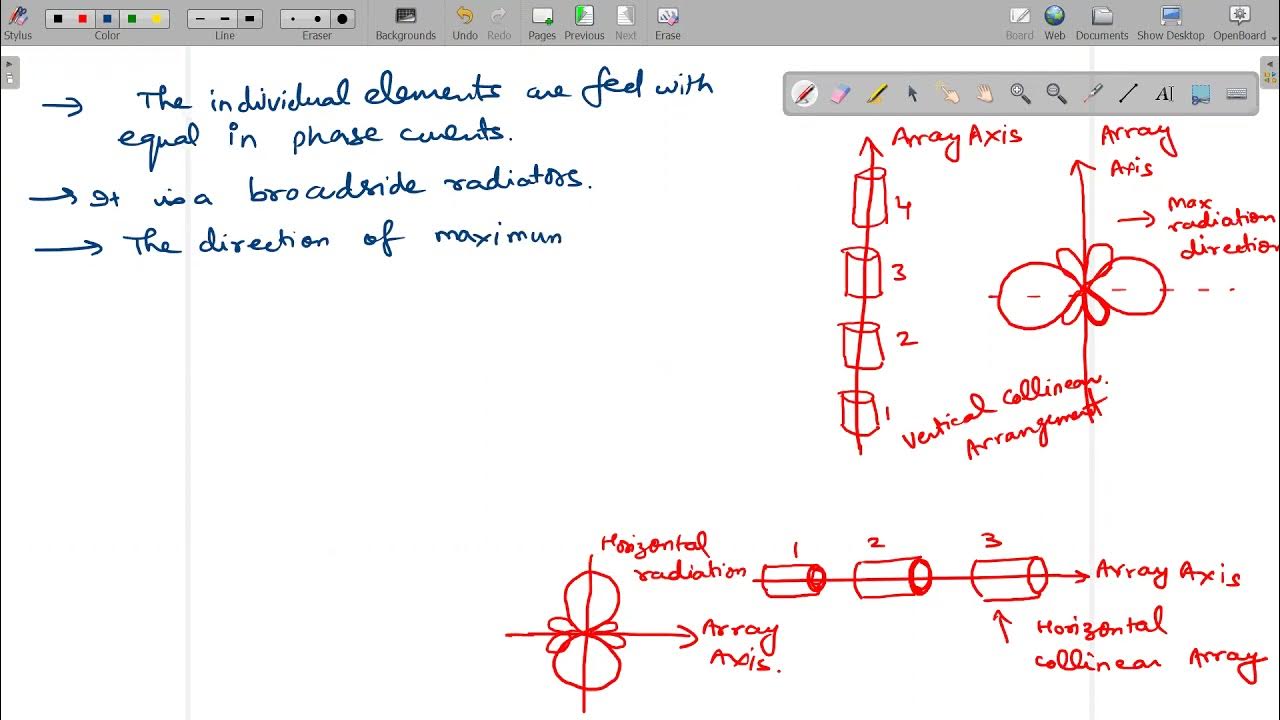 Stylus
Color
Line
Eraser
Backgrounds
Undo
Redo
Pages
Previous
Next
Erase
Board
Web
Documents
Show Desktop
OpenBoard
→ The individual elements are feed with
equal in phase cuents.
→ It is a broadside radiators.
→ The direction of maximun
Array Axis
4
3
2
1
Vertical Collinear.
Arrangement
Array
Axis
→ Max
radiation
direction
Horizontal
radiation
Array
Axis.
1 2 3
Array Axis
↑ Horizontal
Collinear Array